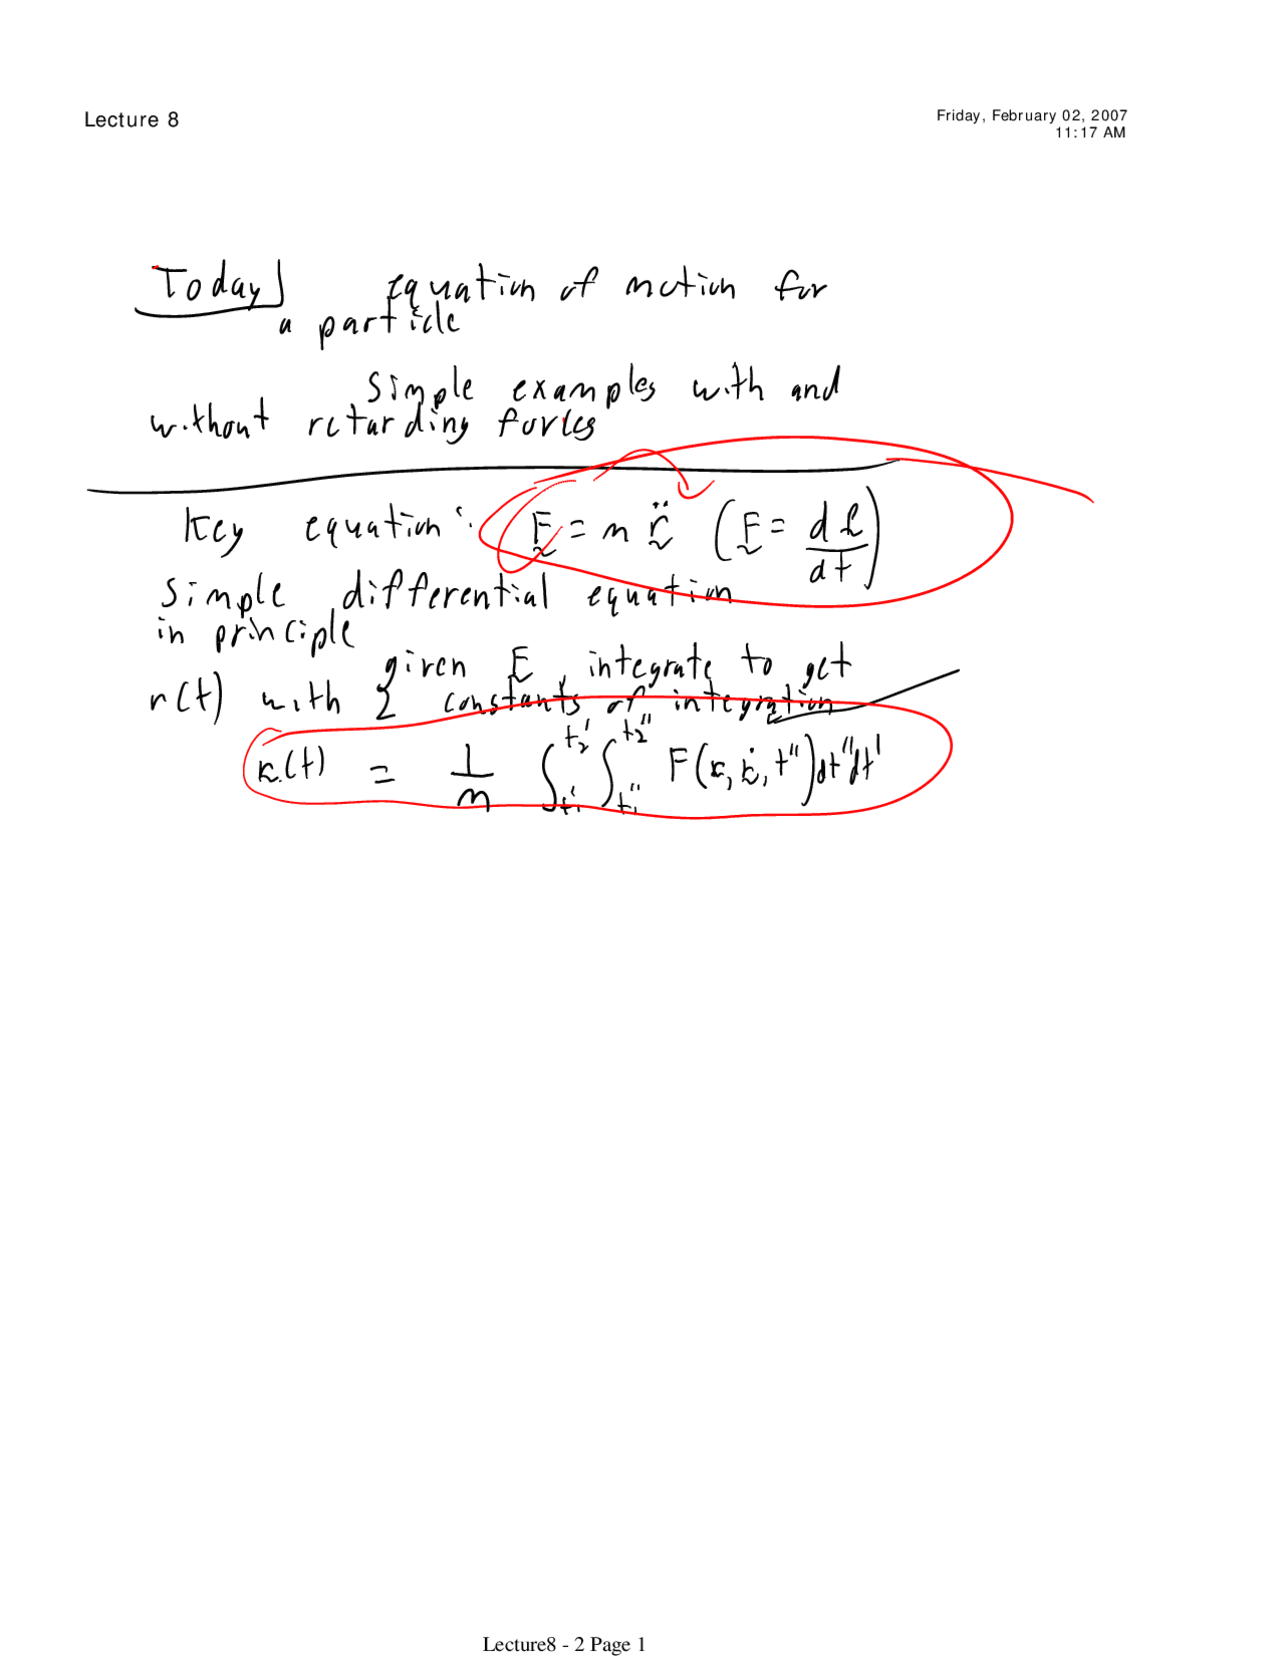 Lecture 8
Friday, February 02, 2007
11:17 AM
Today equation of motion for
a particle
simple examples with and
without retarding forces
Key equation: F = m r̈ (F = dP/dt)
simple differential equation
in principle
given F, integrate to get
r(t) with 2 constants of integration
r(t) = 1/m ∫_{t₁'}^{t₂'} ∫_{t₁''}^{t₂''} F(r, ṙ, t'')dt''dt'
Lecture8 - 2 Page 1